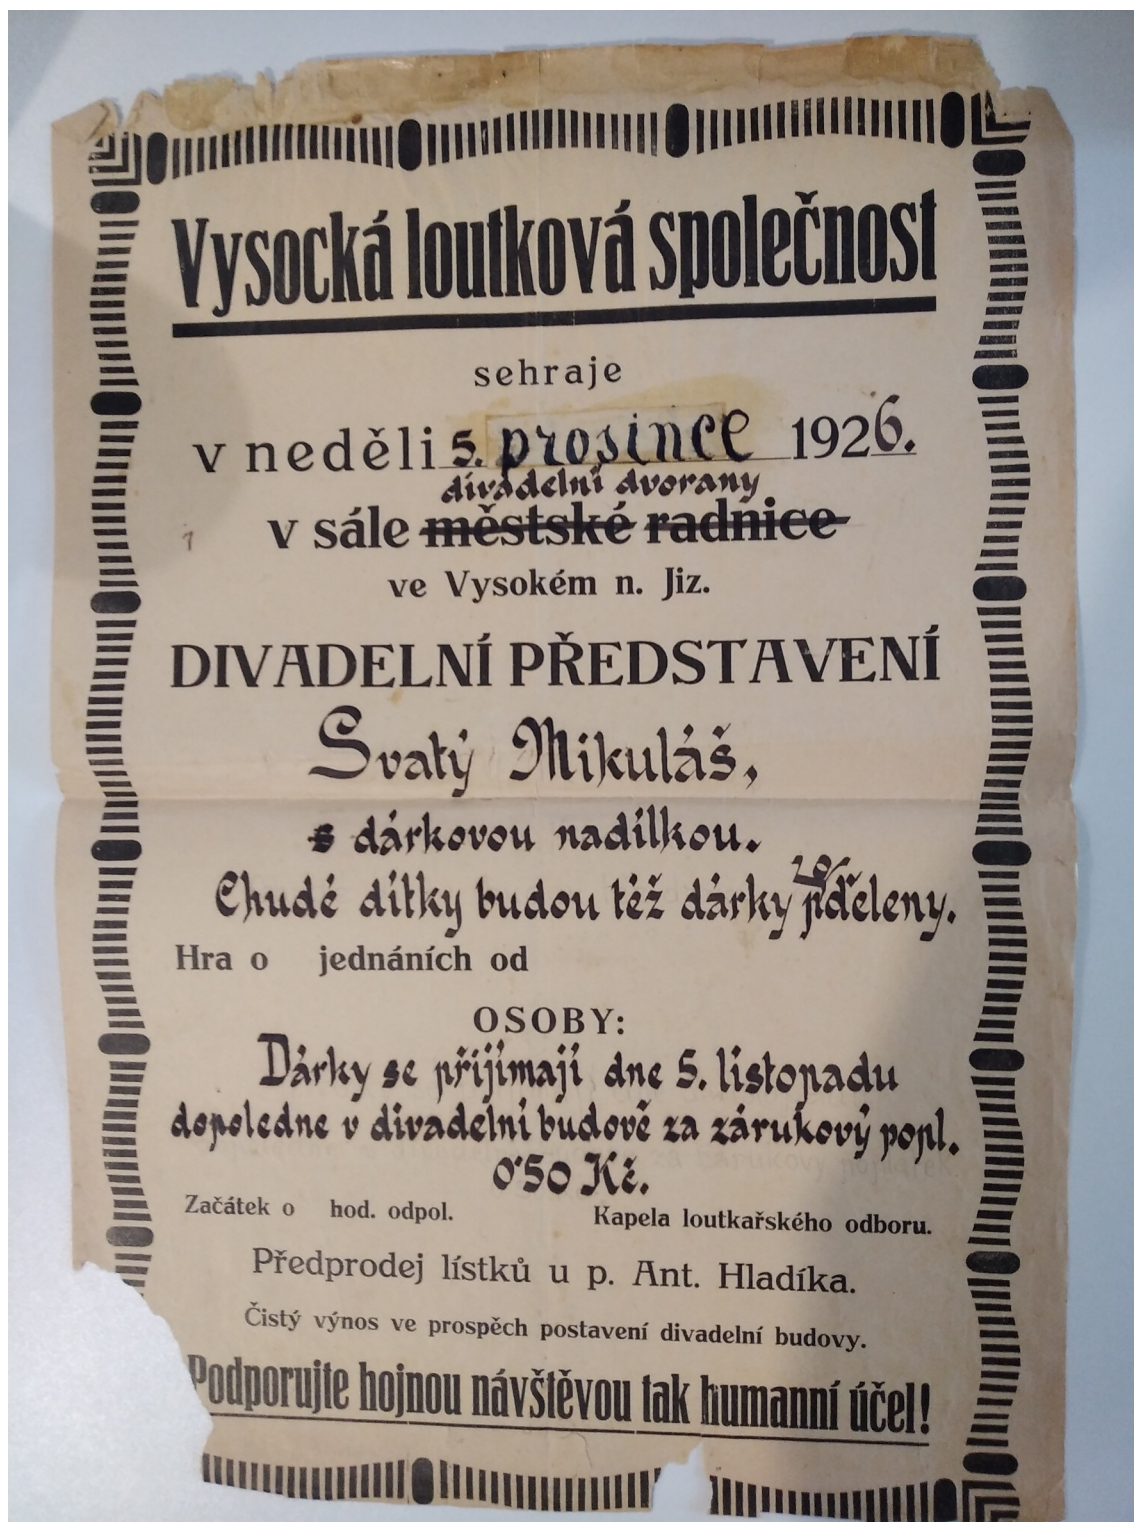 Vysocká loutková společnost
sehraje
v neděli 5. prosince 1926.
divadelní dvorany
v sále městské radnice
ve Vysokém n. Jiz.
DIVADELNÍ PŘEDSTAVENÍ
Svatý Mikuláš,
s dárkovou nadílkou.
Chudé dítky budou též dárky
Hra o jednáních od
OSOBY:
Dárky se přijímají dne 5. listopadu
dopoledne v divadelní budově za zárukový popl.
0'50 Kč.
Začátek o hod. odpol. Kapela loutkařského odboru.
Předprodej lístků u p. Ant. Hladíka.
Čistý výnos ve prospěch postavení divadelní budovy.
Podporujte hojnou návštěvou tak humanní účel!